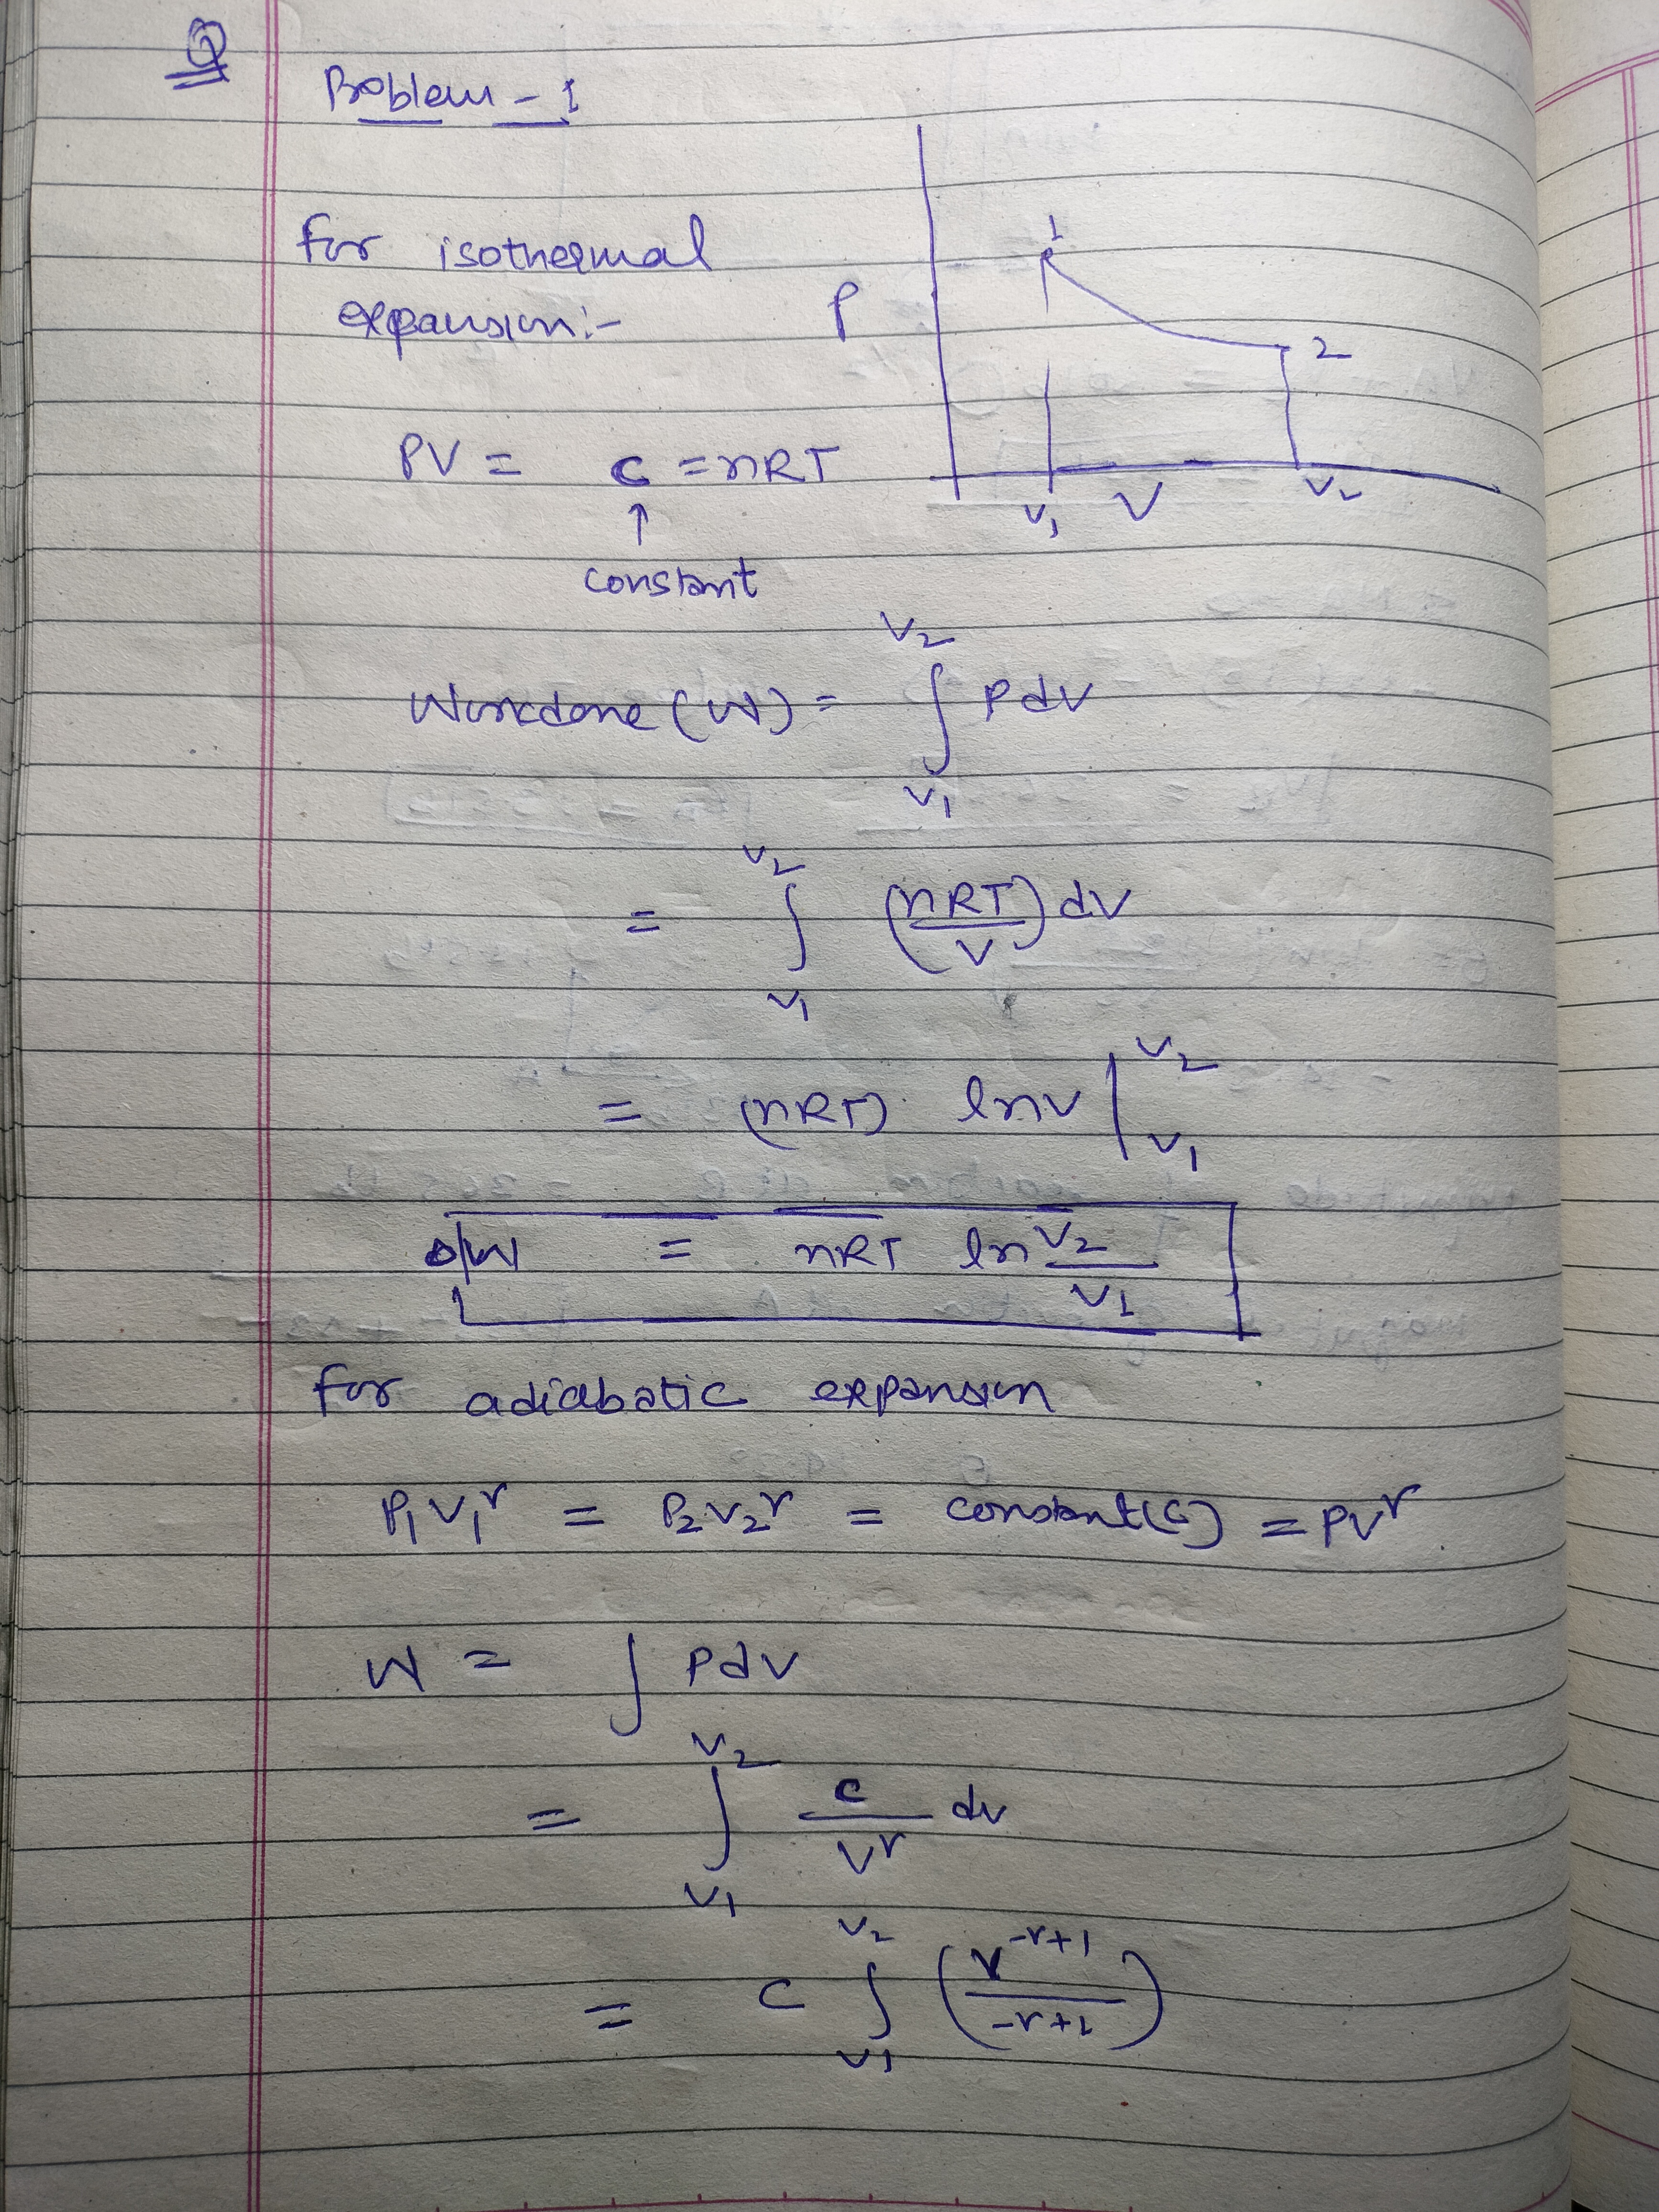 Q
Problem - 1
for isothermal
expansion:-
P
1
2
V1 V V2
PV = C = nRT
↑
constant
Workdone (W) = ∫_{V1}^{V2} PdV
= ∫_{V1}^{V2} (nRT/V) dV
= (nRT) lnV |_{V1}^{V2}
W = nRT ln V2/V1
for adiabatic expansion
P1V1^r = P2V2^r = constant(C) = PV^r
W = ∫ PdV
= ∫_{V1}^{V2} C/V^r dv
= C ∫_{V1}^{V2} (V^{-r+1}/-r+1)